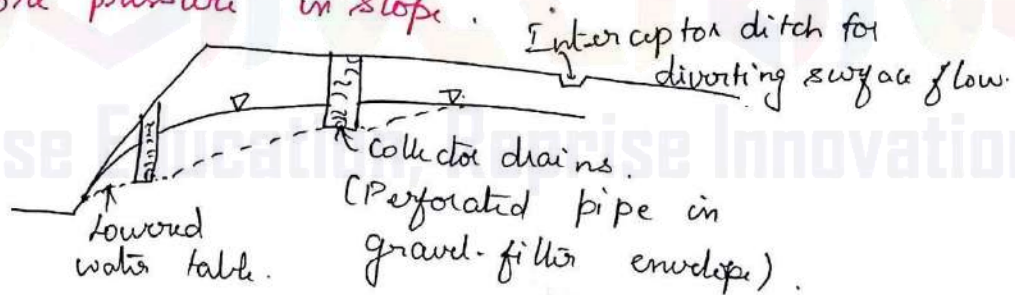 pore pressure in slope.
Interceptor ditch for
diverting surface flow.
Collector drains.
(Perforated pipe in
gravel-filter envelope).
Lowered
water table.
se Education, Reprise Innovation